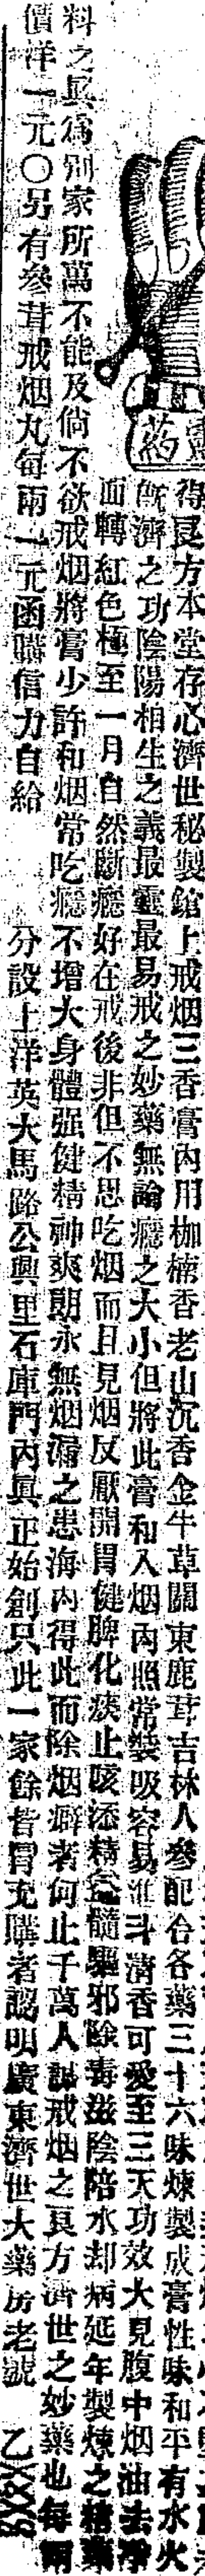 藥
得良方本堂存心濟世秘製錧上戒烟三香膏內用枷楠香老山沉香金牛草關東鹿茸吉林人參配合各藥三十六味煉製成膏性味和平有水火
旣濟之功陰陽相生之義最靈最易戒之妙藥無論癮之大小但將此膏和入烟內照常裝吸容易進斗清香可愛至三天功效大見腹中烟油去淨
面轉紅色極至一月自然斷癮好在戒後非但不思吃烟而且見烟反厭開胃健脾化痰止咳添精益髓驅邪除毒滋陰陪水却病延年製煉之精藥
料之眞爲別家所萬不能及倘不欲戒烟將膏少許和烟常吃癮不增大身體强健精神爽朗永無烟漏之患海內得此而除烟癖者何止千萬人誠戒烟之良方濟世之妙藥也每兩
價洋一元〇另有參茸戒烟丸每兩一元函購信力自給 分設上洋英大馬路公興里石庫門內眞正始創只此一家餘皆冒充購者認明廣東濟世大藥房老號